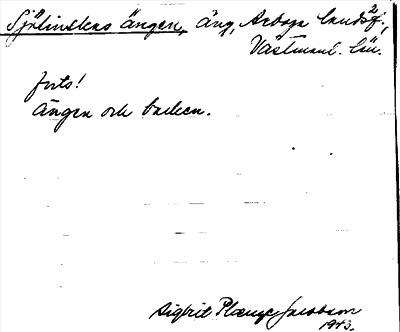 Sjölinskens ängen, äng, Arboga landsf.,
Västmanl. län.
forts!
Ängen och backen.
Sigfrid Plænge Jacobson
1943.